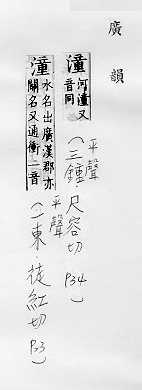 廣韻
潼 河潼又音同
平聲(三鍾.尺容切 P34)
潼 水名出廣漢郡亦關名又通衝一音
平聲(一東.徒紅切 P3)